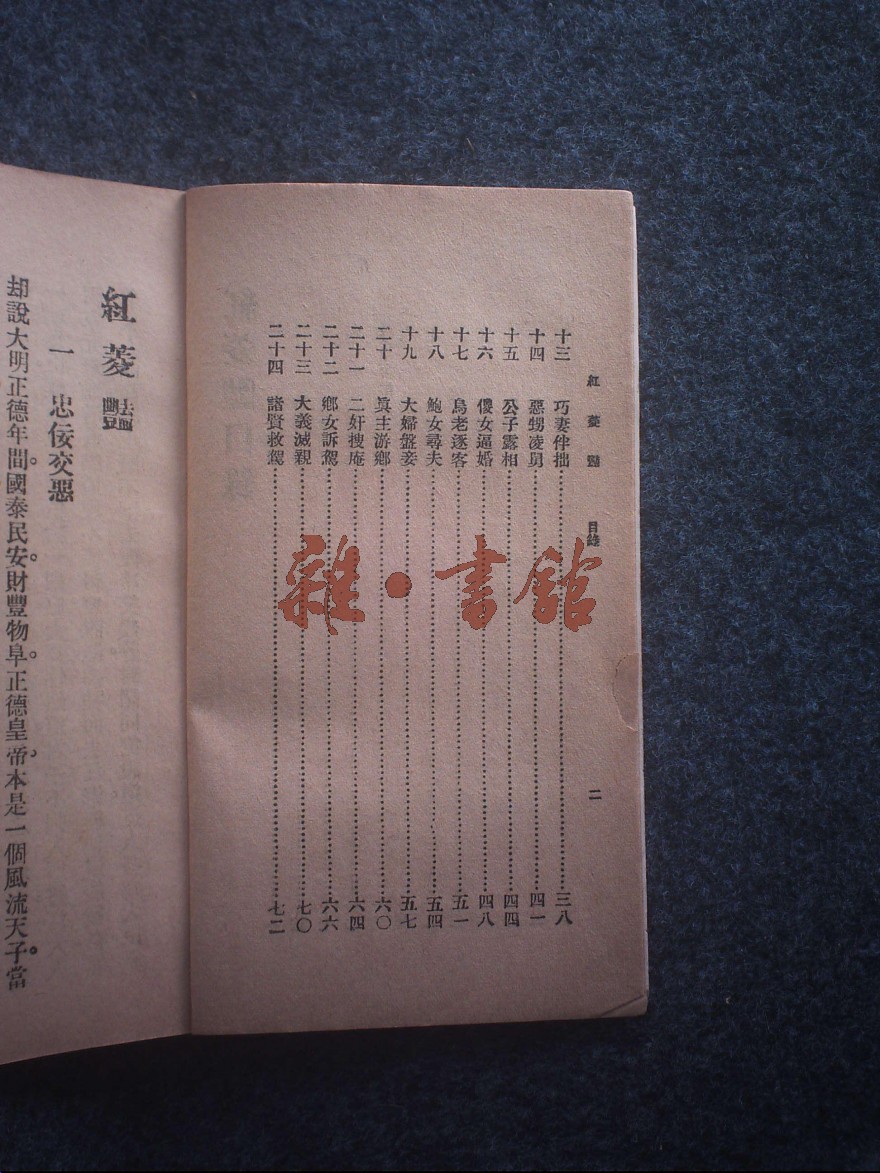 紅菱豔 目錄 二
十三 巧妻伴拙 三八
十四 惡甥凌舅 四一
十五 公子露相 四四
十六 傻女逼婚 四八
十七 鳥老逐客 五一
十八 鮑女尋夫 五四
十九 大婦盤妾 五七
二十 眞主游鄉 六〇
二十一 二奸搜庵 六四
二十二 鄉女訴駕 六六
二十三 大義滅親 七〇
二十四 諸賢救駕 七二
紅菱豔
一 忠佞交惡
却說大明正德年間。國泰民安。財豐物阜。正德皇帝、本是一個風流天子。當
雜·書館